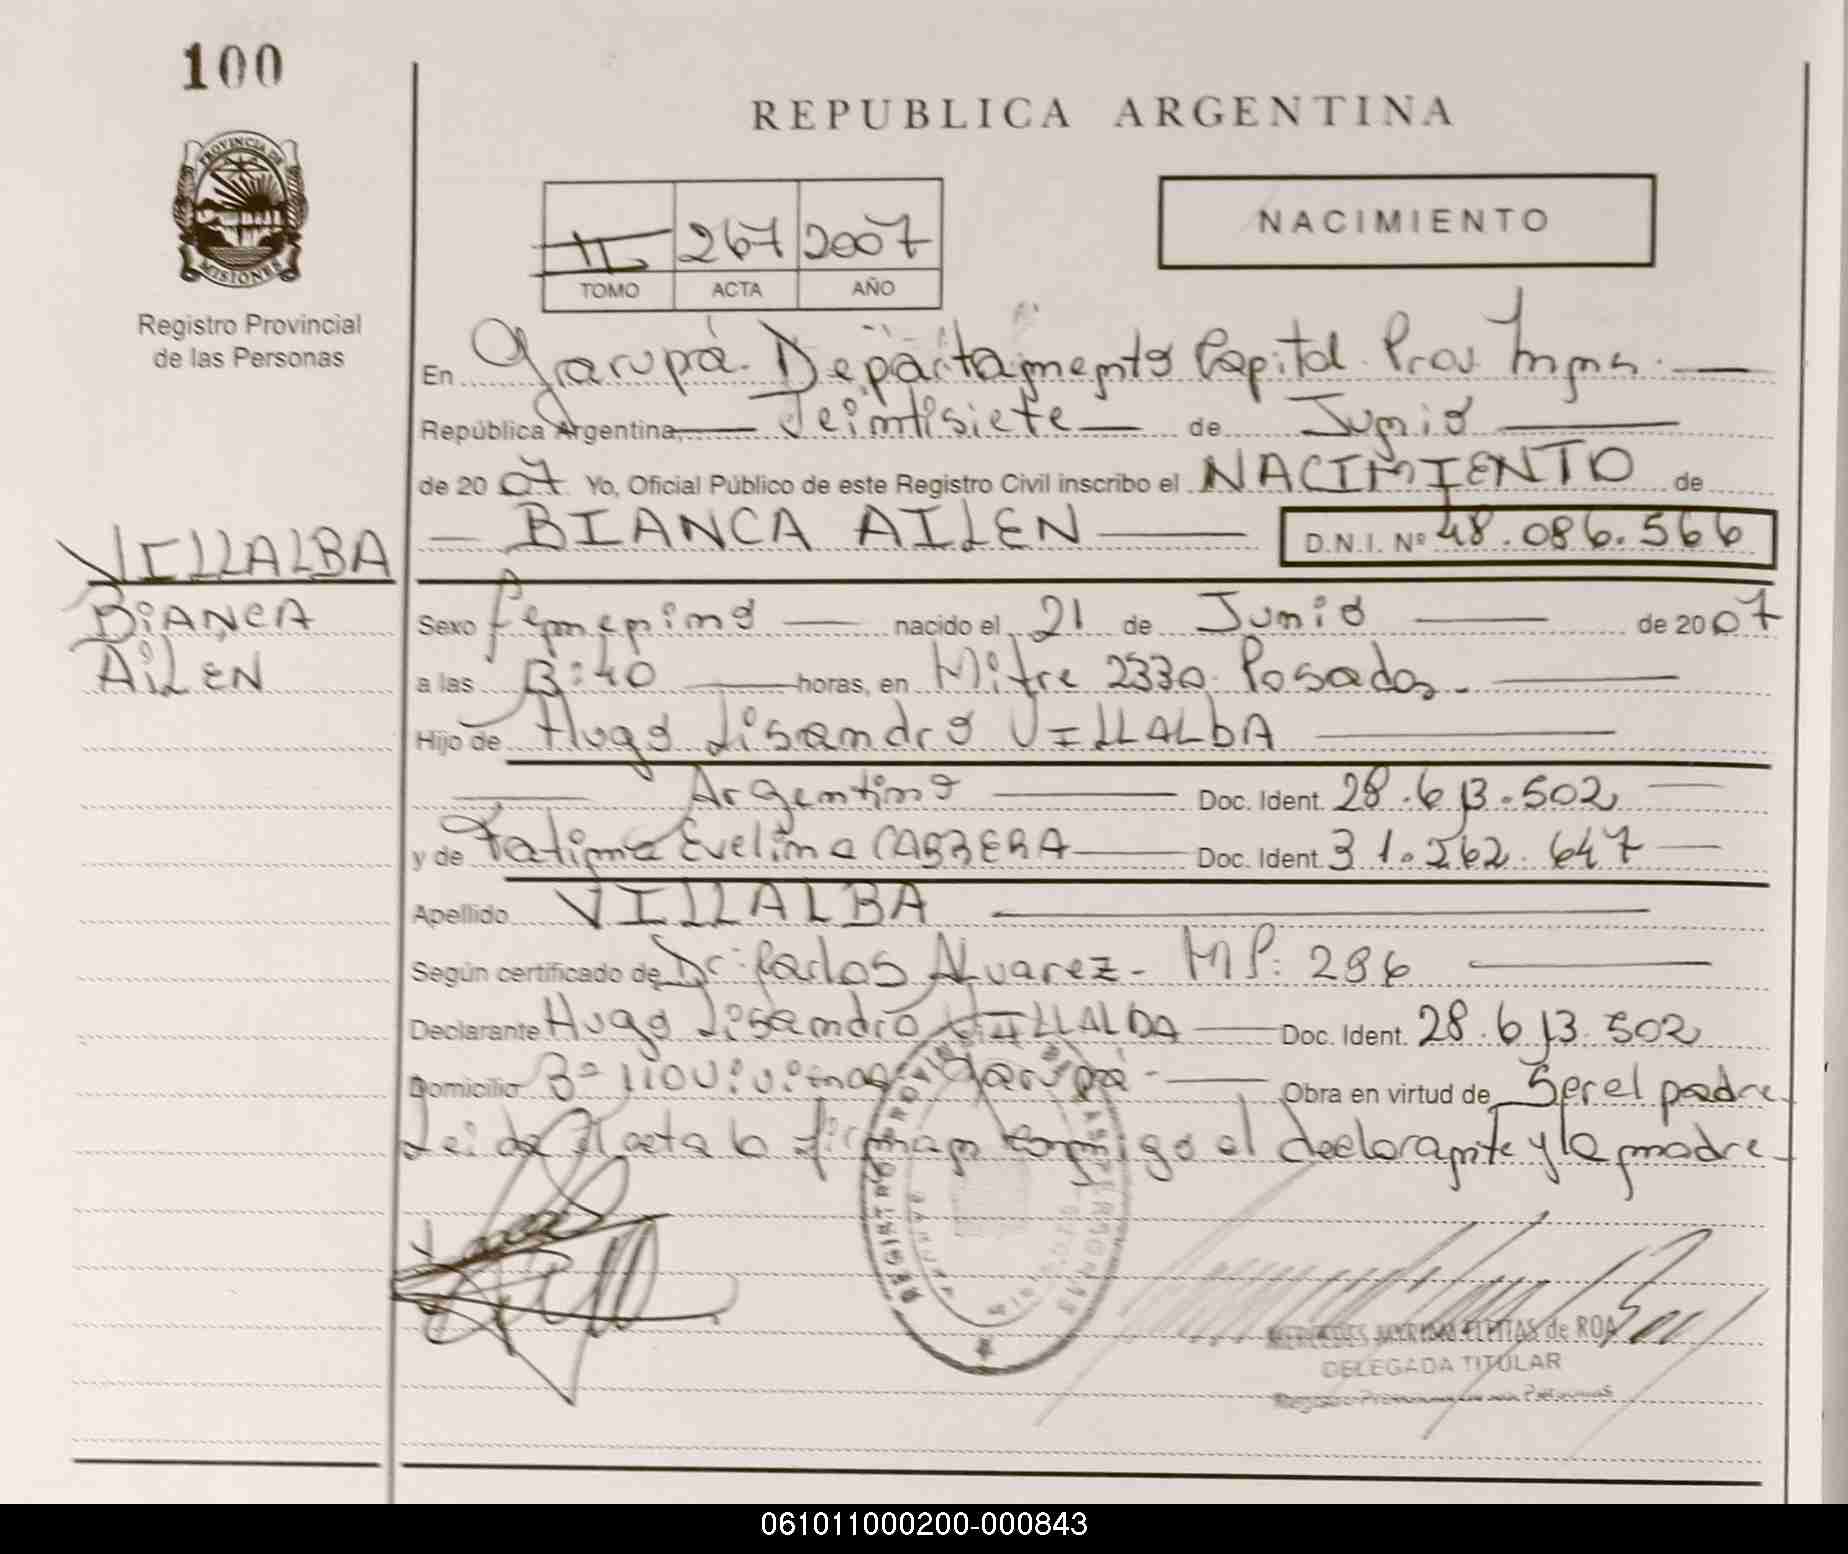 100
REPUBLICA ARGENTINA
PROVINCIA DE MISIONES
II 267 2007
TOMO ACTA AÑO
NACIMIENTO
Registro Provincial
de las Personas
En Garupá. Departamento Capital. Prov. Mnes.
República Argentina, Veintisiete de Junio
de 2007 Yo, Oficial Público de este Registro Civil inscribo el NACIMIENTO de
BIANCA AILEN D.N.I. Nº 48.086.566
VILLALBA
BiANCA
AiLEN
Sexo femenino nacido el 21 de Junio de 2007
a las 13:40 horas, en Mitre 2330. Posadas.
Hijo de Hugo Lisandro VILLALBA
Argentino Doc. Ident. 28.613.502
y de Fatima Evelina CABRERA Doc. Ident. 31.262.647
Apellido VILLALBA
Según certificado de Dr. Carlos Alvarez - MP: 286
Declarante Hugo Lisandro VILLALBA Doc. Ident. 28.613.502
Domicilio Bº 110 Viviendas Garupá - Obra en virtud de Ser el padre.
Leida el acta la firman conmigo el declarante y la madre.
REGISTRO PROVINCIAL DE LAS PERSONAS
GARUPA
MERCEDES MYRIAM FLEITAS de ROA
DELEGADA TITULAR
Registro Provincial de las Personas
061011000200-000843